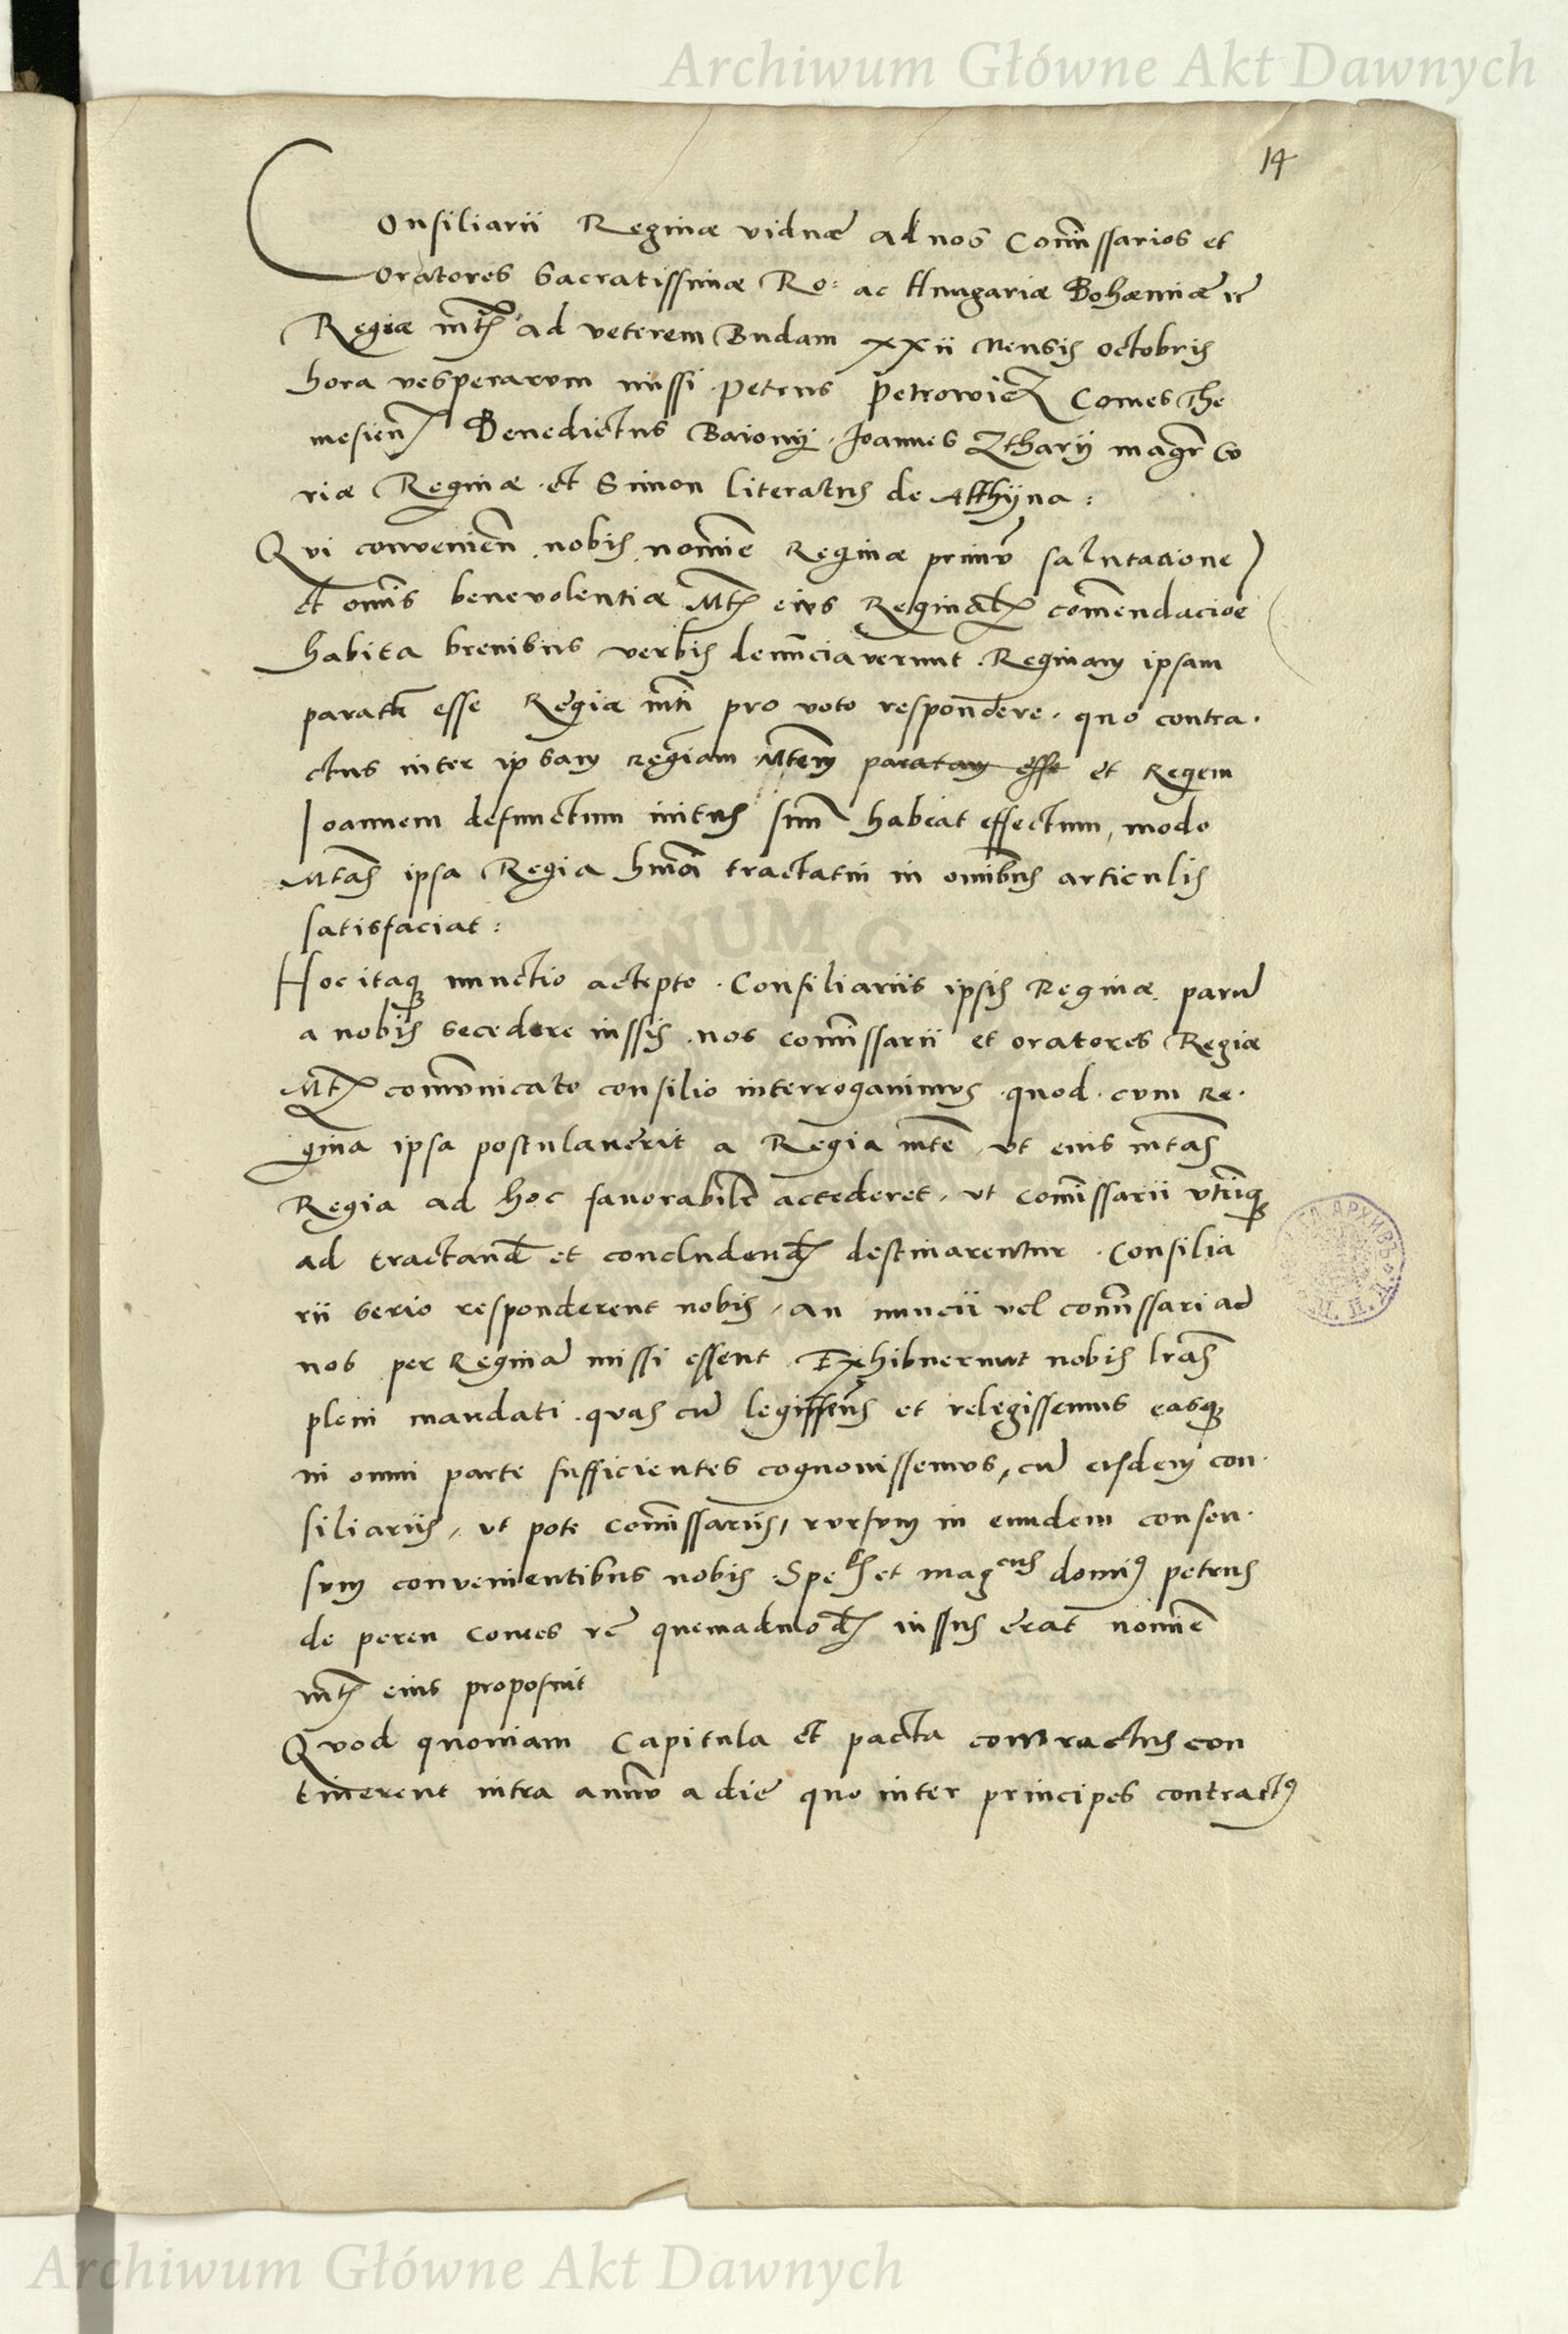 Archiwum Główne Akt Dawnych
14
Consiliarii Reginæ viduæ ad nos Com̃issarios et
oratores Sacratissimæ Ro: ac Hungariæ Bohæmiæ ꝛc̃
Regiæ m̃tis ad veterem Budam xxii Mensis octobris
hora vesperarum missi petrus petrowicz Comes The
mesieñ Benedictus Baiony. Joannes Zthary magr̃ Cu
riæ Reginæ. et Simon literatus de Atthyna:
Qui convenieñ. nobis. nomĩe Reginæ primũ salutatione
et om̃is benevolentiæ M̃tis eius Reginalis com̃endacioẽ
habita brevibus verbis denũciaverunt. Reginam ipsam
paratã esse Regiæ m̃ti pro voto respondere. quo contra.
ctus inter ipsam regiam Mt̃em paratam esse et Regem
Joannem defunctum initus suũ habeat effectum, modo
Mt̃as ipsa Regia hmõi tractatui in omĩbus articulis
satisfaciat:
Hoc itaq nunctio accepto. Consiliariis ipsis Reginæ. parũ
a nobis secedere iussis. nos com̃issarii et oratores Regiæ
M̃tis com̃unicato consilio interrogavimus. quod. cum Re.
gina ipsa postulaverit a Regia mt̃e, ut eius mt̃as
Regia ad hoc favorabilẽ accederet, ut com̃issarii utriq
ad tractand̃ et concludend̃ destinarentur. Consilia
rii serio responderent nobis, an nuncii vel com̃issari ad
nos per Reginã missi essent. Exhibuerunt nobis lr̃as
pleni mandati. quas cũ legissem̃us et relegissemus easq
in omni parte sufficientes cognovissemus, cũ eisdem con.
siliariis, ut pote com̃issariis, rursum in eundem consen.
sum convenientibus nobis. Spe^lis et mag^cus domiꝰ petrus
de peren Comes ꝛc̃ quemadmod̃ iussus erat nomĩe
m̃tis eius proposuit
Quod quoniam Capitula et pacta contractus con
tinerent intra annũ a die quo inter principes contractꝰ
Archiwum Główne Akt Dawnych